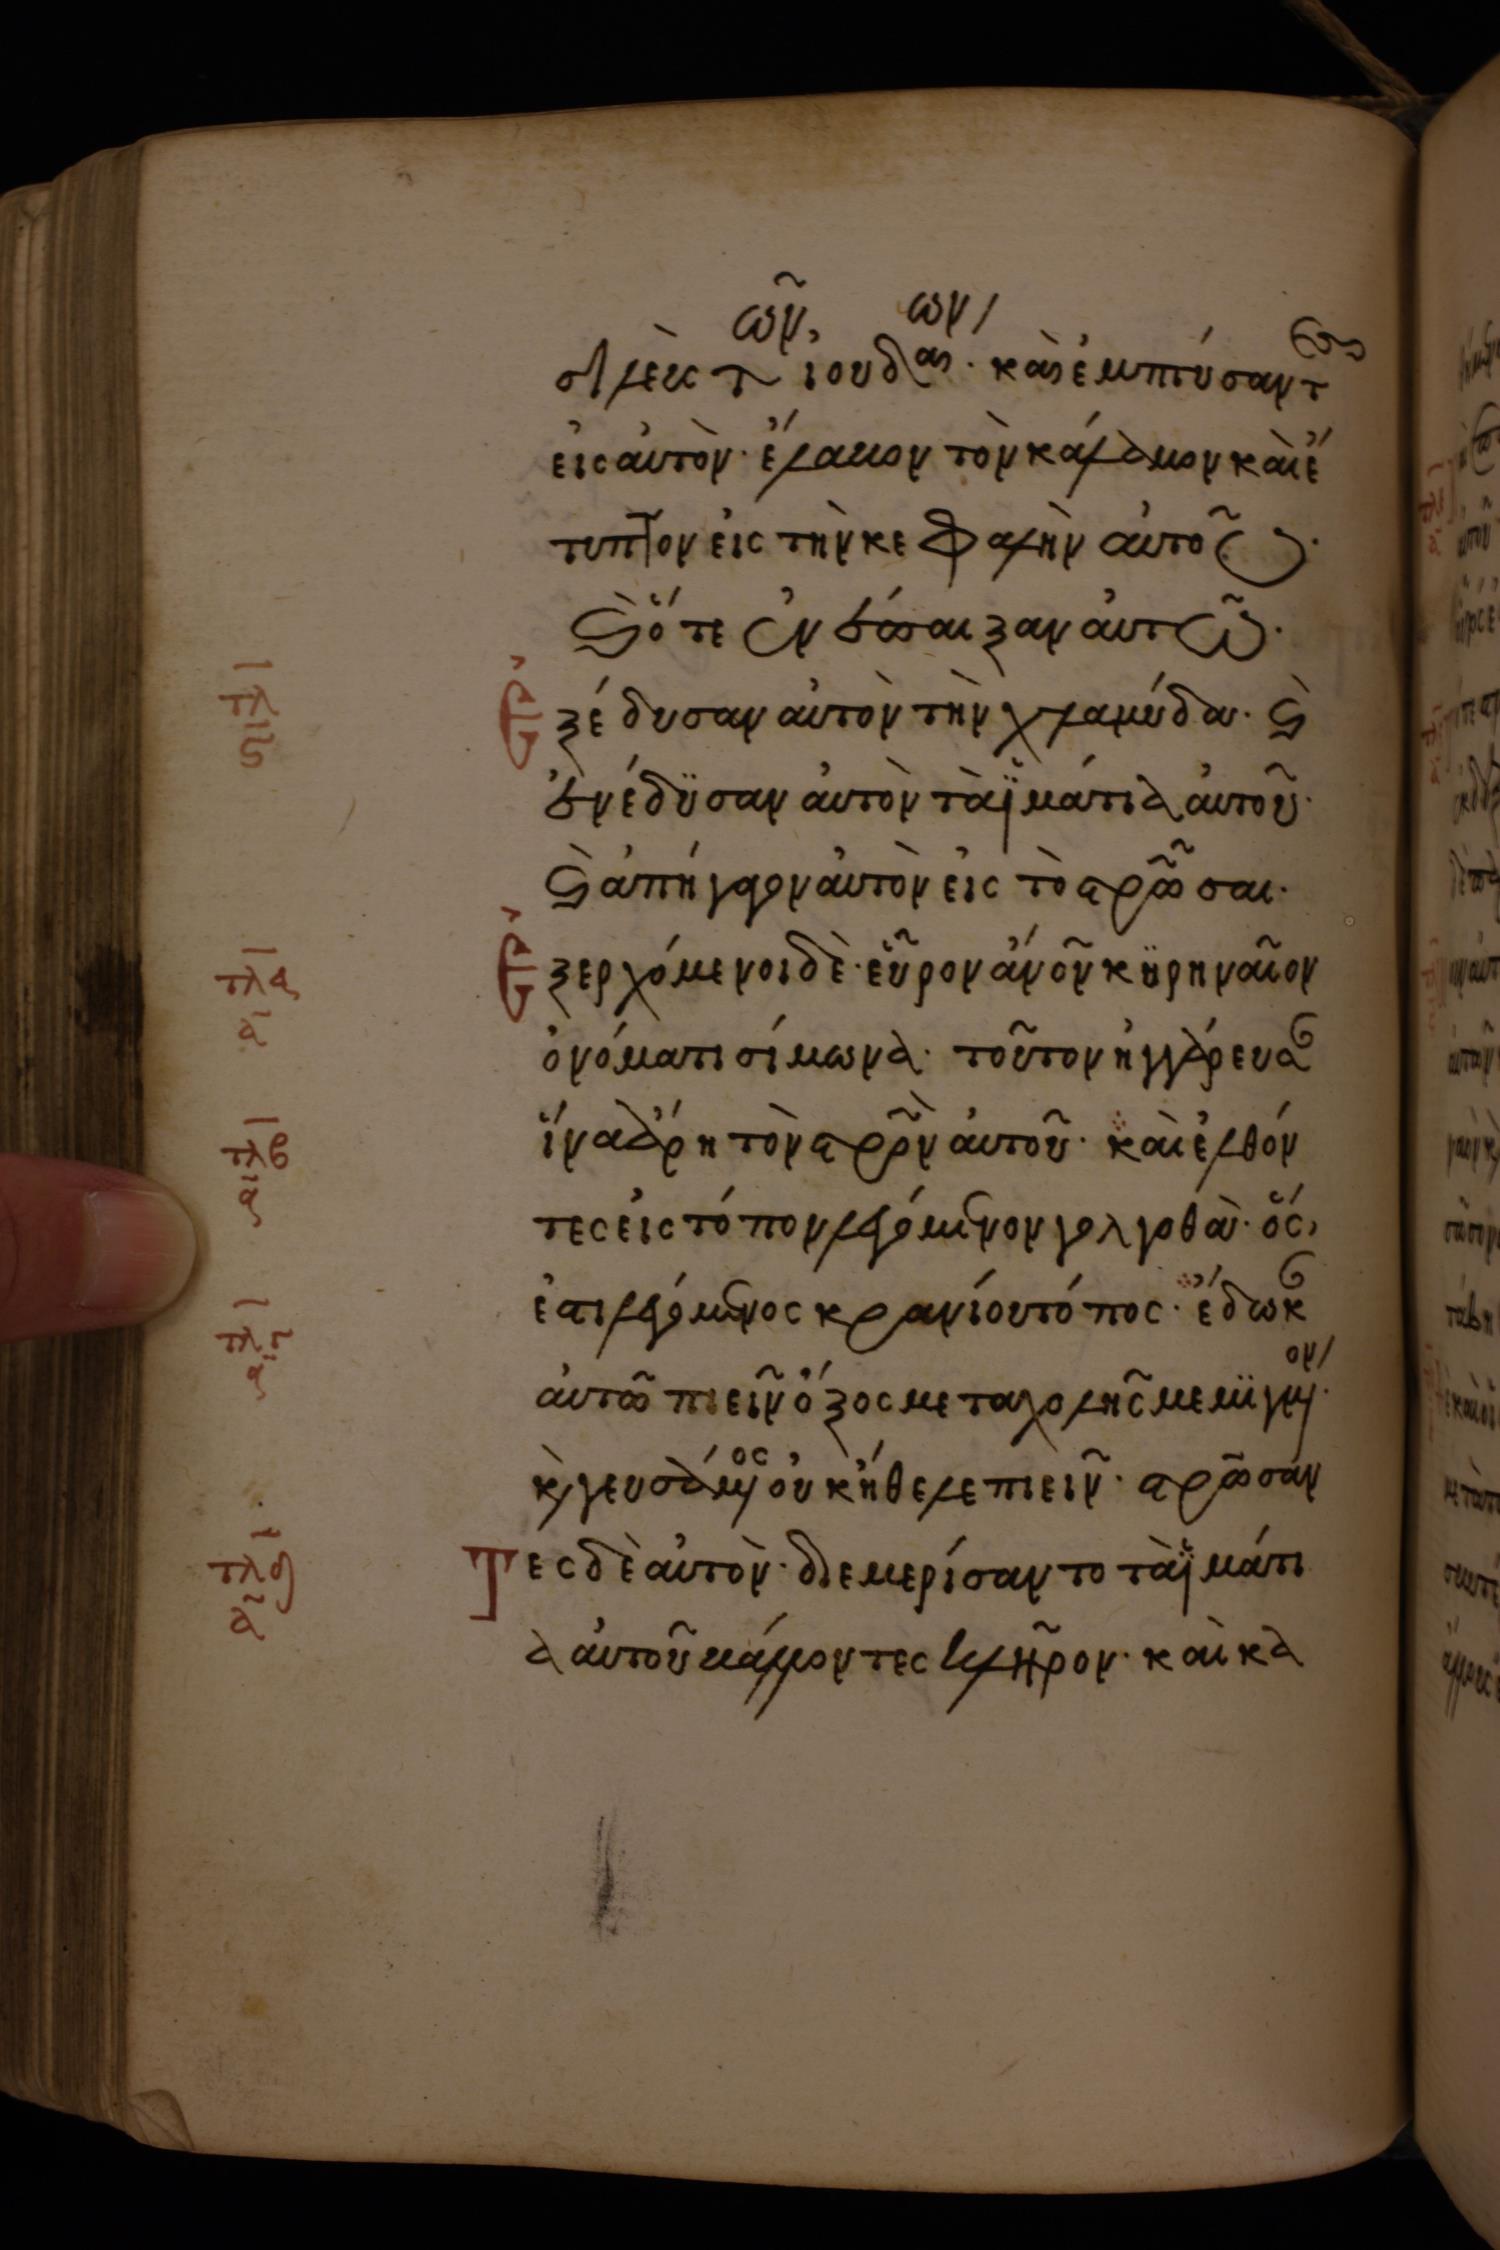 σιλεῦς τῶν ἰουδαίων· καὶ ἐμπτύσαντες
εἰς αὐτὸν· ἔλαβον τὸν κάλαμον καὶ ἔ
τυπτον εἰς τὴν κεφαλὴν αὐτοῦ·
καὶ ὅτε ἐνέπαιξαν αὐτῶ·
τλ ϛ
Ἐξέδυσαν αὐτὸν τὴν χλαμύδα· καὶ
ἐνέδυσαν αὐτὸν τὰ ἱμάτια αὐτοῦ·
καὶ ἀπήγαγον αὐτὸν εἰς τὸ σρῶσαι·
τλα α
Ἐξερχόμενοι δὲ· εὗρον ἄνον κϋρηναῖον
ὀνόματι σίμωνα· τοῦτον ἠγγάρευσαν
τλβ α
ἵνα ἄρη τὸν σρὸν αὐτοῦ· καὶ ἐλθόν
τες εἰς τόπον λεγόμενον γολγοθὰ· ὅς,
τλγ α
ἐστι λεγόμενος κρανίου τόπος· ἔδωκαν
αὐτῶ πιεῖν ὄξος μετα χολῆς μεμϊγμένον·
κὶ γευσάμενος οὐκ ἤθελε πιεῖν· σρώσαν
τλδ α
Τες δὲ αὐτὸν· διεμερίσαντο τὰ ἱμάτι
α αὐτοῦ βάλλοντες κλῆρον· καὶ κα